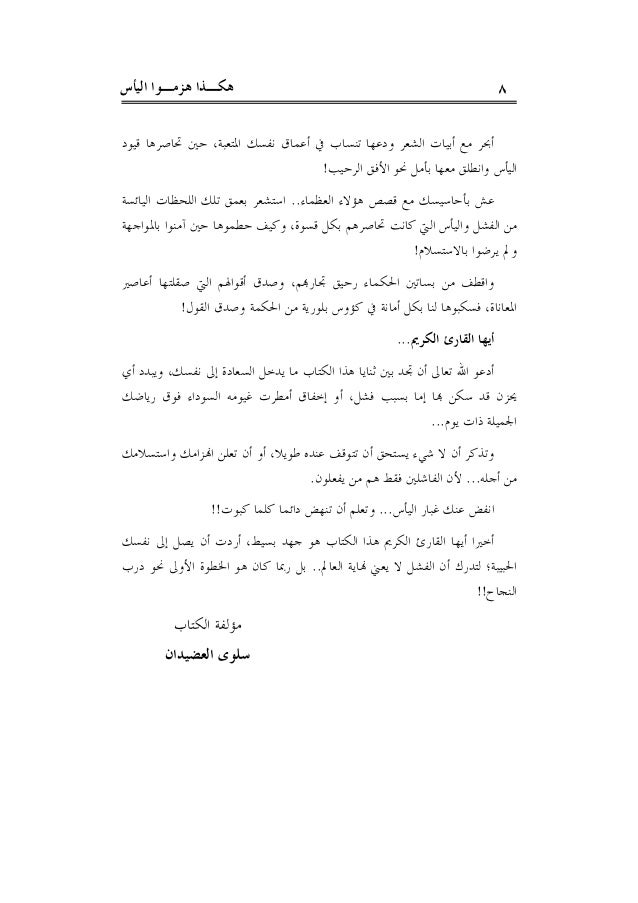 هكـــذا هزمـــوا اليأس ٨
أبحر مع أبيات الشعر ودعها تنساب في أعماق نفسك المتعبة، حين تحاصرها قيود
اليأس وانطلق معها بأمل نحو الأفق الرحيب!
عش بأحاسيسك مع قصص هؤلاء العظماء.. استشعر بعمق تلك اللحظات اليائسة
من الفشل واليأس التي كانت تحاصرهم بكل قسوة، وكيف حطموها حين آمنوا بالمواجهة
ولم يرضوا بالاستسلام!
واقطف من بساتين الحكماء رحيق تجاربهم، وصدق أقوالهم التي صقلتها أعاصير
المعاناة، فسكبوها لنا بكل أمانة في كؤوس بلورية من الحكمة وصدق القول!
أيها القارئ الكريم...
أدعو الله تعالى أن تجد بين ثنايا هذا الكتاب ما يدخل السعادة إلى نفسك، ويبدد أي
حزن قد سكن بها إما بسبب فشل، أو إخفاق أمطرت غيومه السوداء فوق رياضك
الجميلة ذات يوم...
وتذكر أن لا شيء يستحق أن تتوقف عنده طويلا، أو أن تعلن انهزامك واستسلامك
من أجله... لأن الفاشلين فقط هم من يفعلون.
انفض عنك غبار اليأس... وتعلم أن تنهض دائما كلما كبوت!!
أخيرا أيها القارئ الكريم هذا الكتاب هو جهد بسيط، أردت أن يصل إلى نفسك
الحبيبة؛ لتدرك أن الفشل لا يعني نهاية العالم.. بل ربما كان هو الخطوة الأولى نحو درب
النجاح!!
مؤلفة الكتاب
سلوى العضيدان